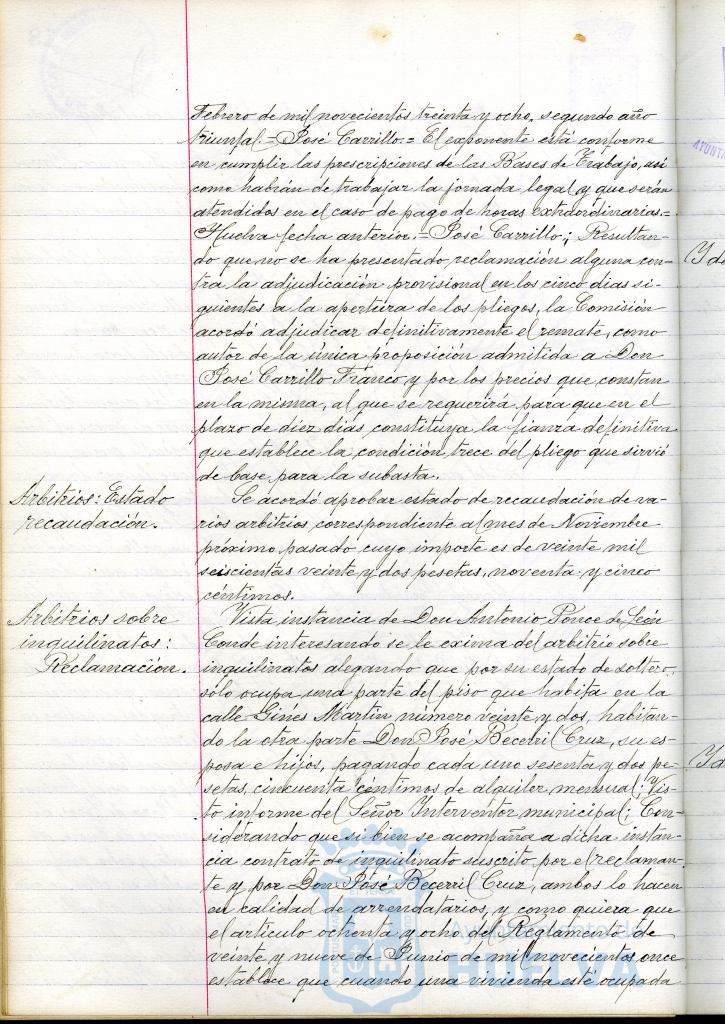 Febrero de mil novecientos treinta y ocho, segundo año
triunfal.=José Carrillo.= El exponente está conforme
en cumplir las prescripciones de las Bases de Trabajo, así
como habrán de trabajar la jornada legal y que serán
atendidos en el caso de pago de horas extraordinarias.=
Huelva fecha anterior.=José Carrillo; Resultan-
do que no se ha presentado reclamación alguna con-
tra la adjudicación provisional en los cinco dias si-
guientes a la apertura de los pliegos, la Comisión
acordó adjudicar definitivamente el remate, como
autor de la única proposición admitida a Don
José Carrillo Franco y por los precios que constan
en la misma, al que se requerirá para que en el
plazo de diez dias constituya la fianza definitiva
que establece la condición trece del pliego que sirvió
de base para la subasta.
Arbitrios: Estado
recaudación.
Se acordó aprobar estado de recaudación de va-
rios arbitrios correspondiente al mes de Noviembre
próximo pasado cuyo importe es de veinte mil
seiscientas veinte y dos pesetas, noventa y cinco
céntimos.
Arbitrios sobre
inquilinatos:
Reclamación.
Vista instancia de Don Antonio Ponce de León
Conde interesando se le exima del arbitrio sobre
inquilinatos alegando que por su estado de soltero,
sólo ocupa una parte del piso que habita en la
calle Ginés Martín número veinte y dos, habitan-
do la otra parte Don José Becerril Cruz, su es-
posa e hijos, pagando cada uno sesenta y dos pe-
setas, cincuenta céntimos de alquiler mensual; Vis-
to informe del Señor Interventor municipal; Con-
siderando que si bien se acompaña a dicha instan-
cia contrato de inquilinato suscrito por el reclaman-
te y por Don José Becerril Cruz, ambos lo hacen
en calidad de arrendatarios, y como quiera que
el artículo ochenta y ocho del Reglamento de
veinte y nueve de Junio de mil novecientos once
establece que cuando una vivienda esté ocupada
HUELVA